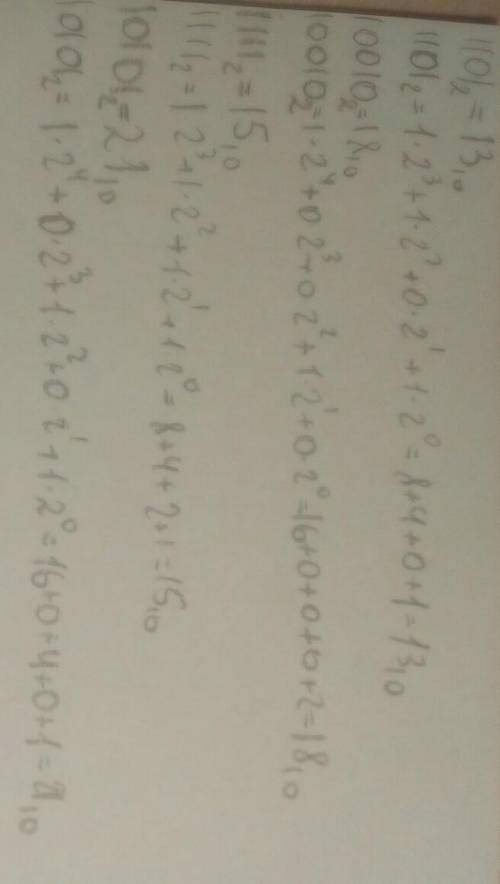 1101₂ = 13₁₀
1101₂ = 1·2³+1·2²+0·2¹+1·2⁰ = 8+4+0+1=13₁₀
10010₂=18₁₀
10010₂=1·2⁴+0 2³+0 2²+1·2¹+0·2⁰=16+0+0+0+2=18₁₀
1111₂=15₁₀
1111₂=1 2³+1·2²+1·2¹+1 2⁰=8+4+2+1=15₁₀
10101₂=21₁₀
10101₂=1·2⁴+0·2³+1·2²+0 2¹+1·2⁰=16+0+4+0+1=21₁₀